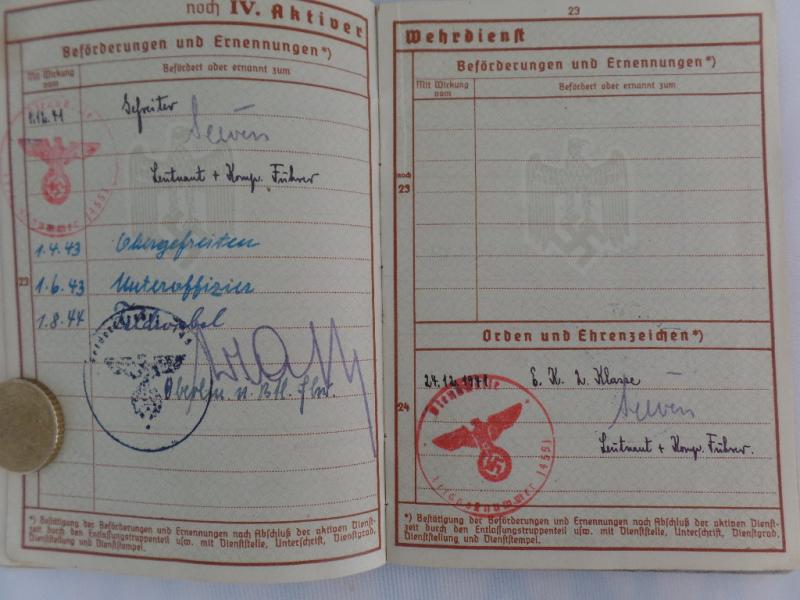 noch IV. Aktiver
Beförderungen und Ernennungen*)
Mit Wirkung vom
Befördert oder ernannt zum
1.12.41 Gefreiter
Leutnant + Komp. Führer
1.4.43 Obergefreiten
23 1.6.43 Unteroffizier
1.8.44 Feldwebel
Oberltn. u. Btl. Fhr.
*) Bestätigung der Beförderungen und Ernennungen nach Abschluß der aktiven Dienst-
zeit durch den Entlassungstruppenteil usw. mit Dienststelle, Unterschrift, Dienstgrad,
Dienststellung und Dienststempel.
23
Wehrdienst
Beförderungen und Ernennungen*)
Mit Wirkung vom
Befördert oder ernannt zum
noch
23
Orden und Ehrenzeichen*)
24.12.1941 E. K. 2. Klasse
24
Leutnant + Komp. Führer.
Dienststelle
*) Bestätigung der Beförderungen und Ernennungen nach Abschluß der aktiven Dienst-
zeit durch den Entlassungstruppenteil usw. mit Dienststelle, Unterschrift, Dienstgrad,
Dienststellung und Dienststempel.